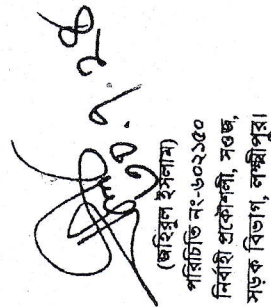 (জহিরুল ইসলাম)
পরিচিতি নং-৬০২১৫০
নির্বাহী প্রকৌশলী, সওজ,
সড়ক বিভাগ, লক্ষ্মীপুর।